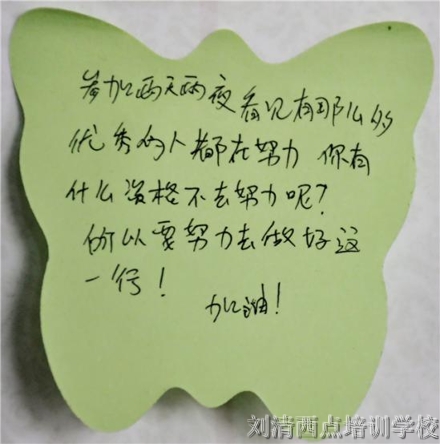 参加两天两夜看见有那么的
优秀的人都在努力 你有
什么资格不去努力呢?
所以要努力去做好这
一行!
加油!
刘清西点培训学校